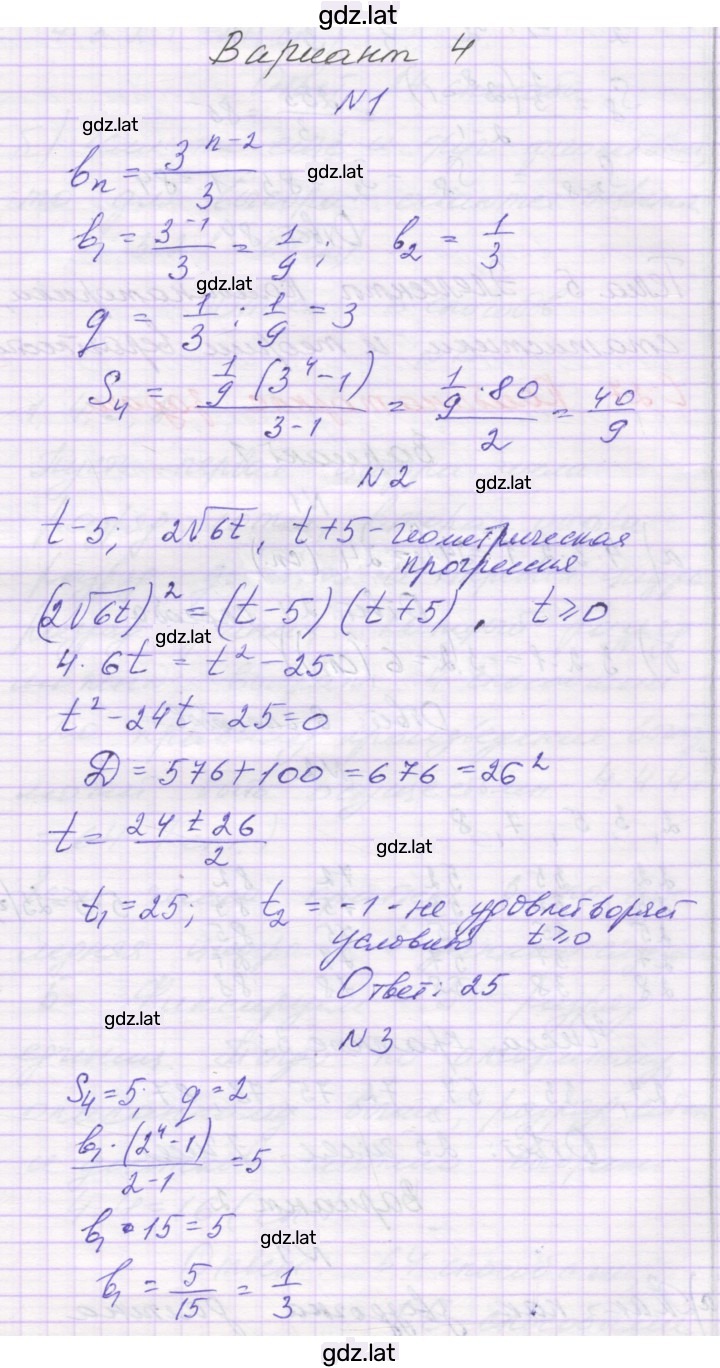 gdz.lat
Вариант 4
N1
gdz.lat
bn = 3^(n-2)/3
gdz.lat
b₁ = 3^(-1)/3 = 1/9; b₂ = 1/3
gdz.lat
q = 1/3 : 1/9 = 3
S₄ = 1/9 (3⁴-1)/(3-1) = (1/9 · 80)/2 = 40/9
N2
gdz.lat
t-5; 2√6t, t+5 - геометрическая
прогрессия
(2√6t)² = (t-5)(t+5), t≥0
gdz.lat
4·6t = t² - 25
t² - 24t - 25 = 0
D = 576+100 = 676 = 26²
t = (24 ± 26)/2
gdz.lat
t₁ = 25; t₂ = -1 - не удовлетворяет
условию t≥0
Ответ: 25
gdz.lat
N3
S₄ = 5; q = 2
b₁·(2⁴-1)/(2-1) = 5
b₁ · 15 = 5
gdz.lat
b₁ = 5/15 = 1/3
gdz.lat